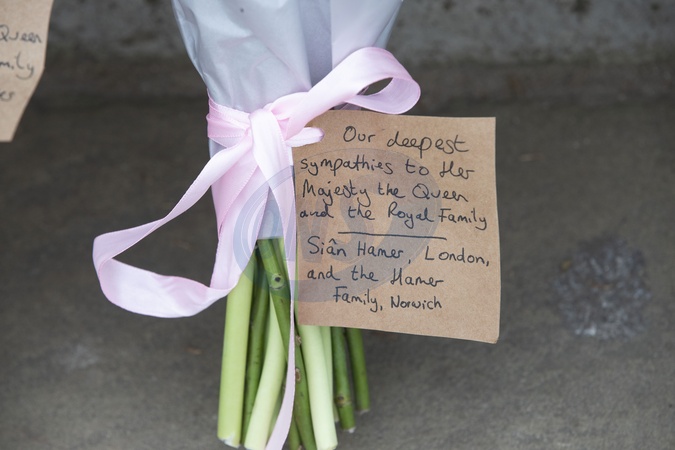 Queen
mily
es
Our deepest
sympathies to Her
Majesty the Queen
and the Royal Family
Siân Hamer, London,
and the Hamer
Family, Norwich